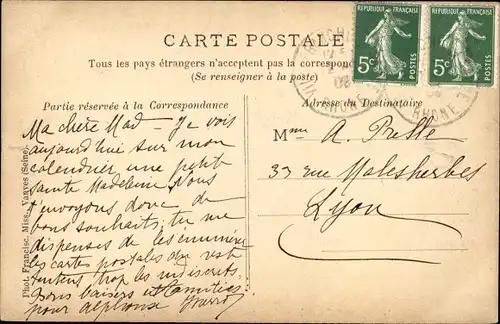 CARTE POSTALE
Tous les pays étrangers n'acceptent pas la correspon
(Se renseigner à la poste)
REPUBLIQUE FRANÇAISE
5c POSTES
REPUBLIQUE FRANÇAISE
5c POSTES
RHONE
RHONE
Partie réservée à la Correspondance
Adresse du Destinataire
Ma chère Mad - Je vois
aujourd'hui sur mon
calendrier une petite
sainte Madeleine. Nous
t'envoyons donc de
bons souhaits; tu me
dispenses de les énumérer
les cartes postales
tentent trop les indiscrets.
Bons baisers et amitiés
pour Alphonse
Mme A. Prelle
33 rue Malesherbes
Lyon
Phot. Francisc. Miss., Vanves (Seine).